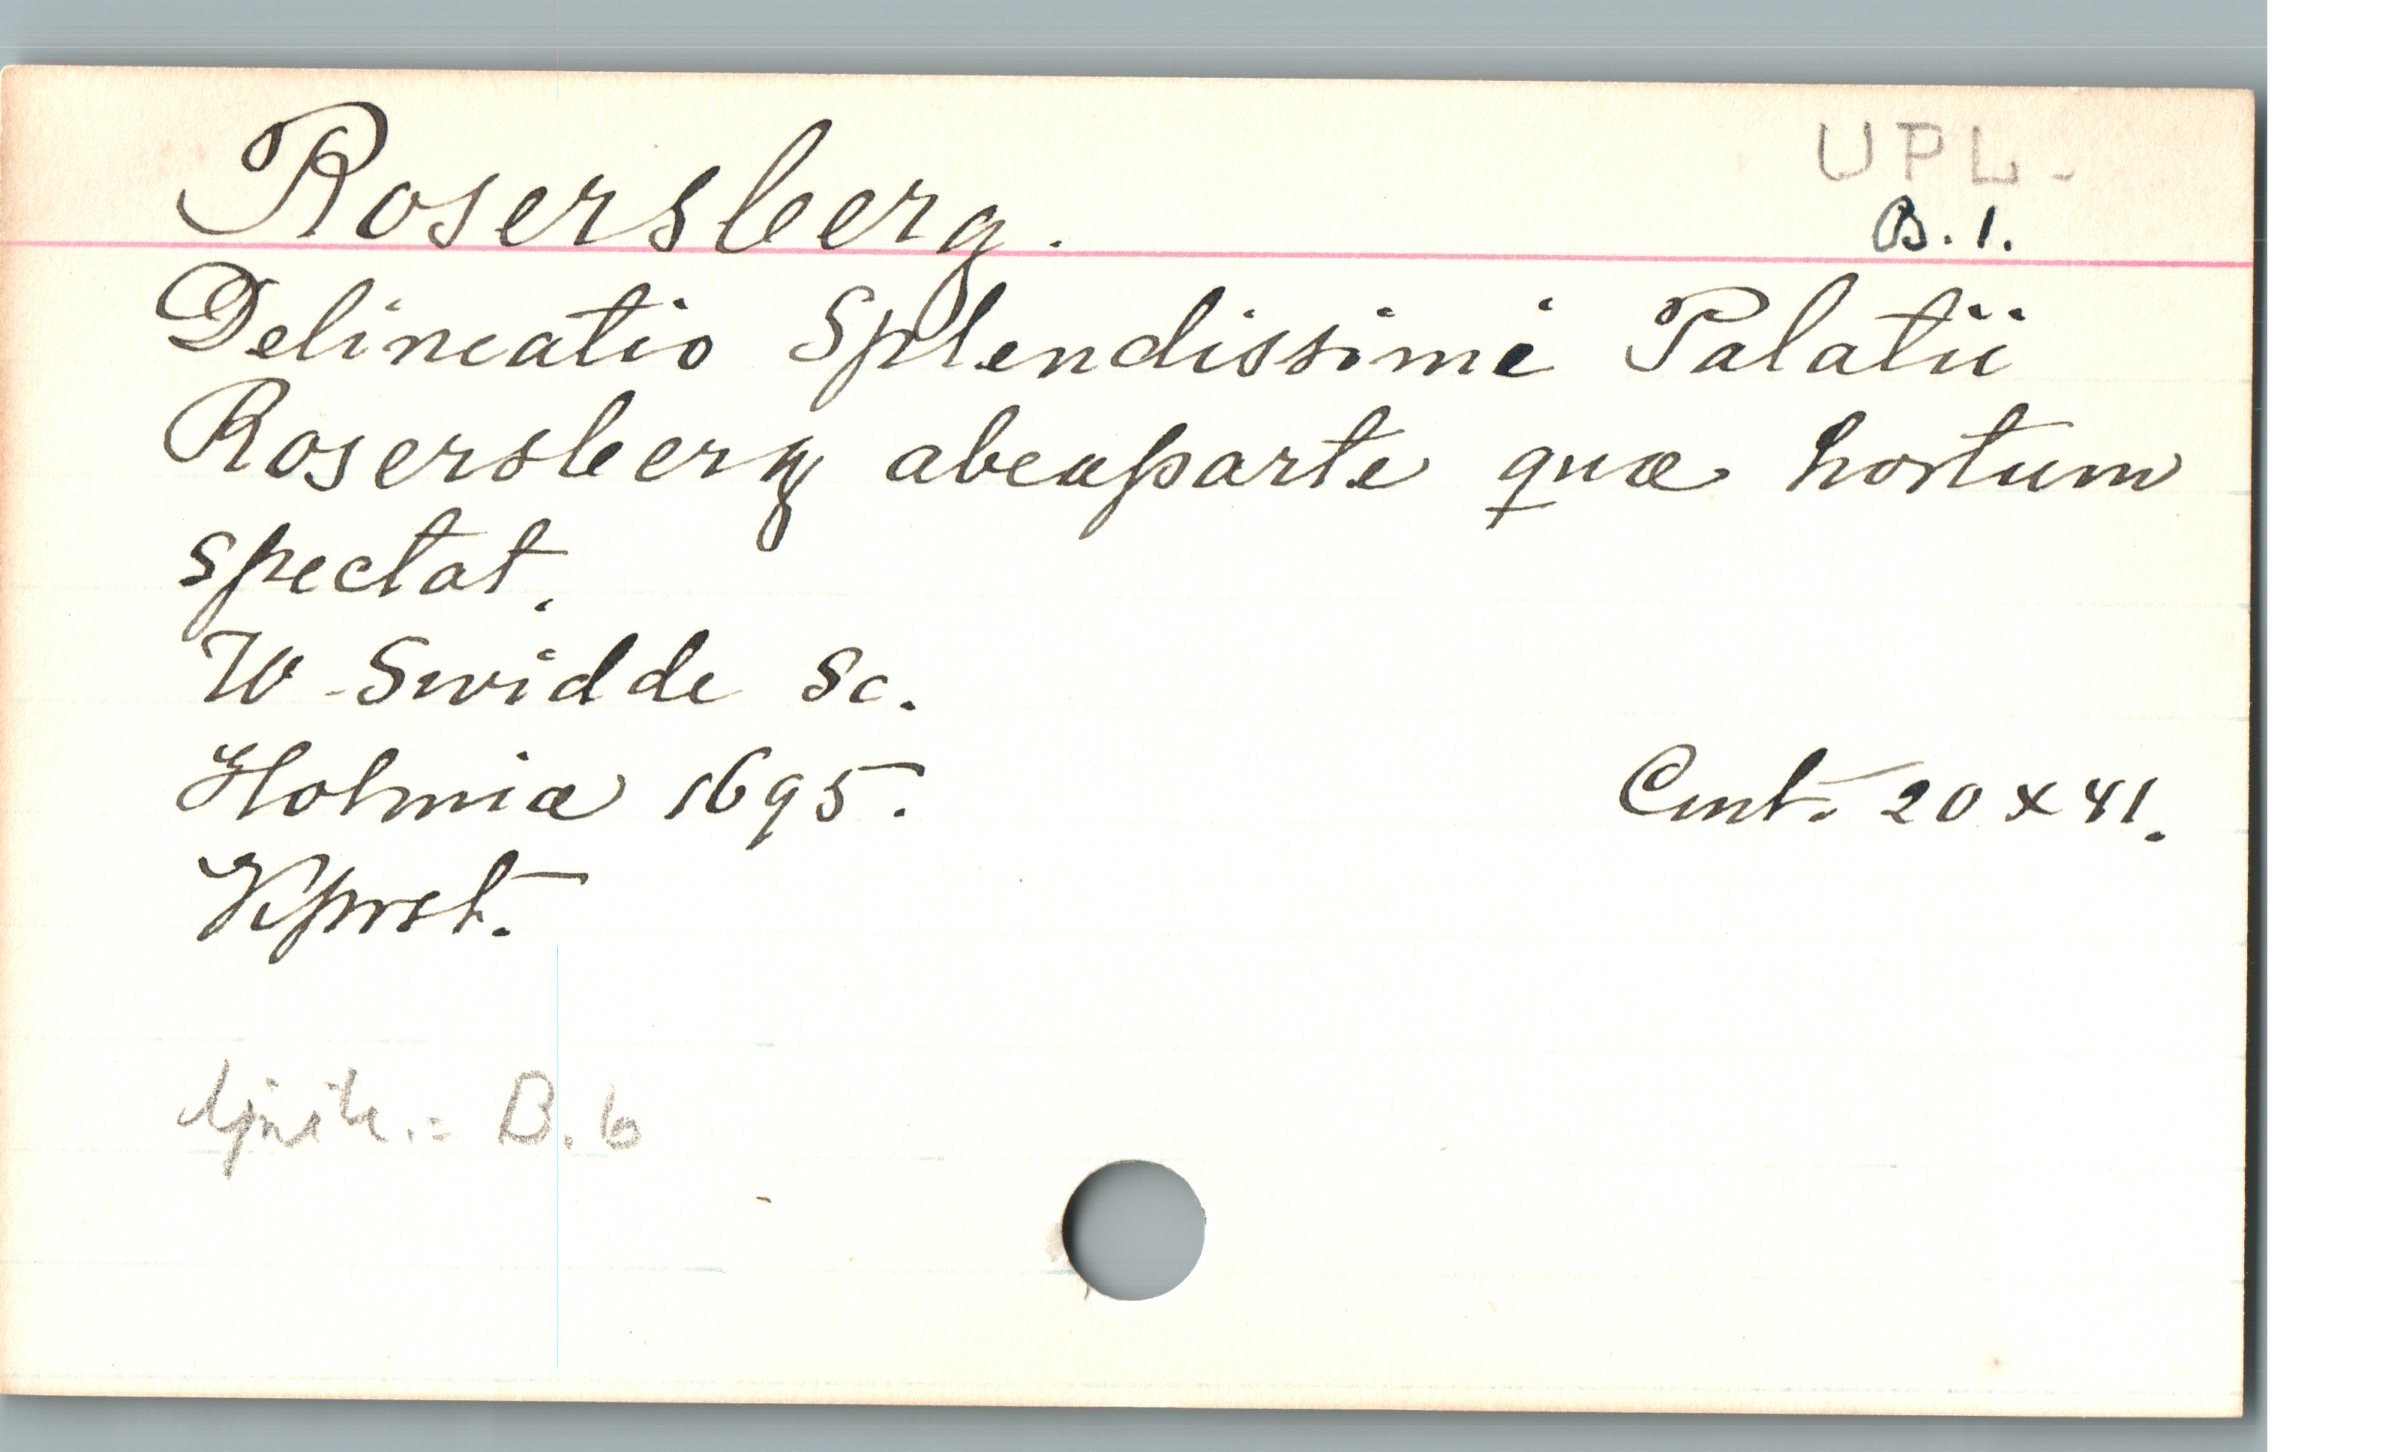 Rosersberg.
UPL-
B. 1.
Delineatio Splendissimi Palatii
Rosersberg abeaparte quæ hortum
spectat.
W. Swidde Sc.
Holmiæ 1695.
Cmt. 20 x 41.
Kprst.
B. 6